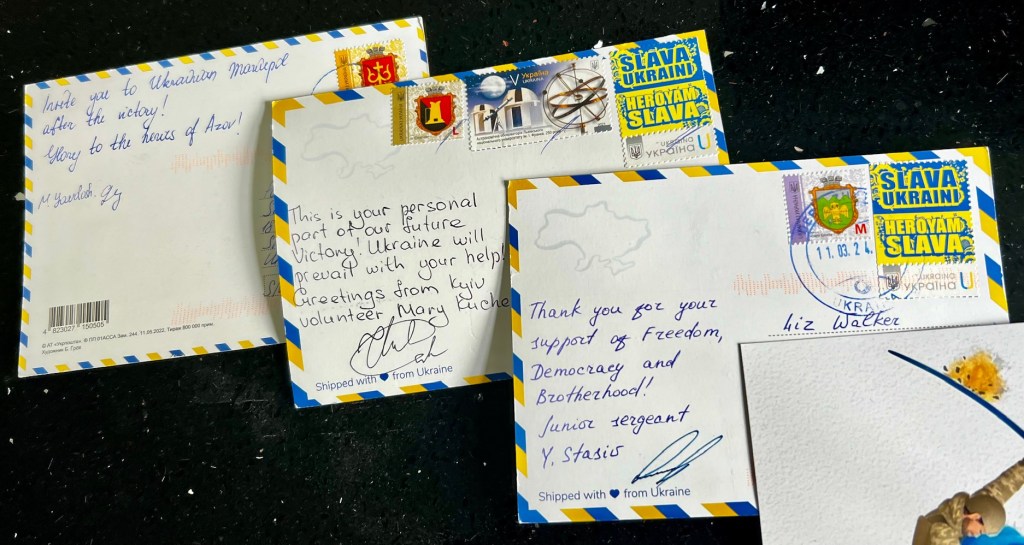 Invite you to Ukrainian
after the victory!
Glory to the heroes of Azov!
4 823027 150505
L
V
Україна
UKRAINE
SLAVA
UKRAINI
HEROYAM
SLAVA
UKRAINE
україна
This is your personal
part of our future
victory! Ukraine will
prevail with your help!
Greetings from Kyiv
volunteer, Mary
Shipped with from Ukraine
M
SLAVA
UKRAINI
HEROYAM
SLAVA
UKRAINE
україна
11.03.24.
UKRA
Liz Walker
Thank you for your
support of Freedom,
Democracy and
Brotherhood!
Junior sergeant
Y. Stasiv
Shipped with from Ukraine